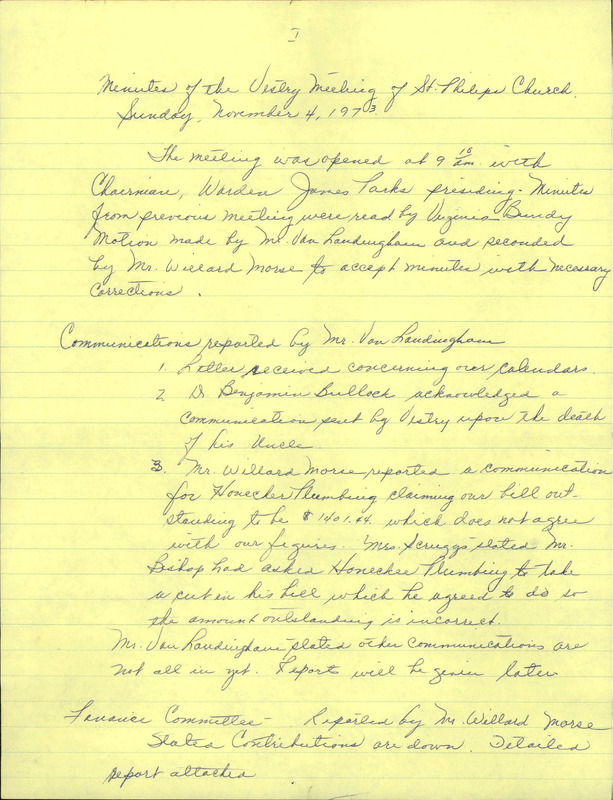 I
Minutes of the Vestry Meeting of St. Philips Church.
Sunday, November 4, 1973.
The meeting was opened at 9 15 am. with
Chairman, Warden James Parks presiding - Minutes
from previous meeting were read by Virginia Bundy
Motion made by Mr. Van Landingham and seconded
by Mr. Willard Morse to accept minutes with necessary
corrections.
Communications reported by Mr. Van Landingham
1. Letter received concerning our calendars.
2. Dr Benjamin Bullock acknowledged a
communication sent by Vestry upon the death
of his Uncle
3. Mr. Willard Morse reported a communication
for Honecker Plumbing claiming our bill out-
standing to be $1401.64. which does not agree
with our figures. Mrs. Scruggs stated Mr.
Bishop had asked Honecker Plumbing to take
a cut in his bill which he agreed to do so
the amount outstanding is incorrect.
Mr. Van Landingham stated other communications are
not all in yet. Report will be given later
Finance Committee - Reported by Mr. Willard Morse
States Contributions are down. Detailed
report attached